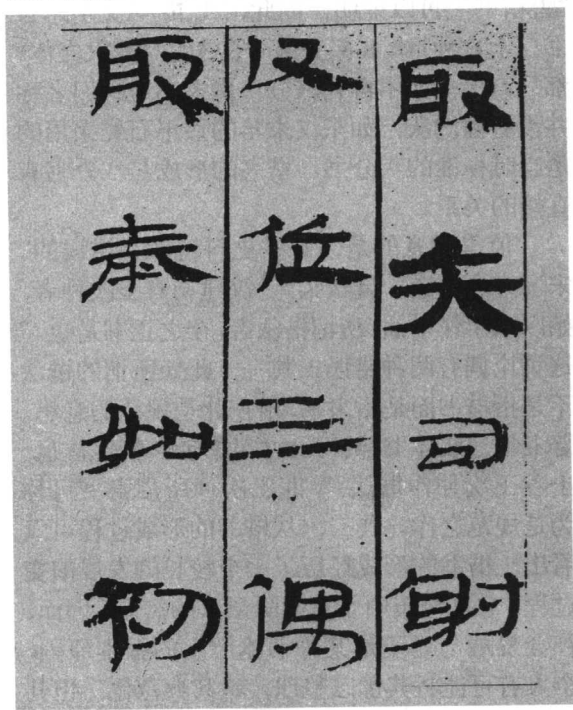 取矢司射
反位三偶
取奉如初